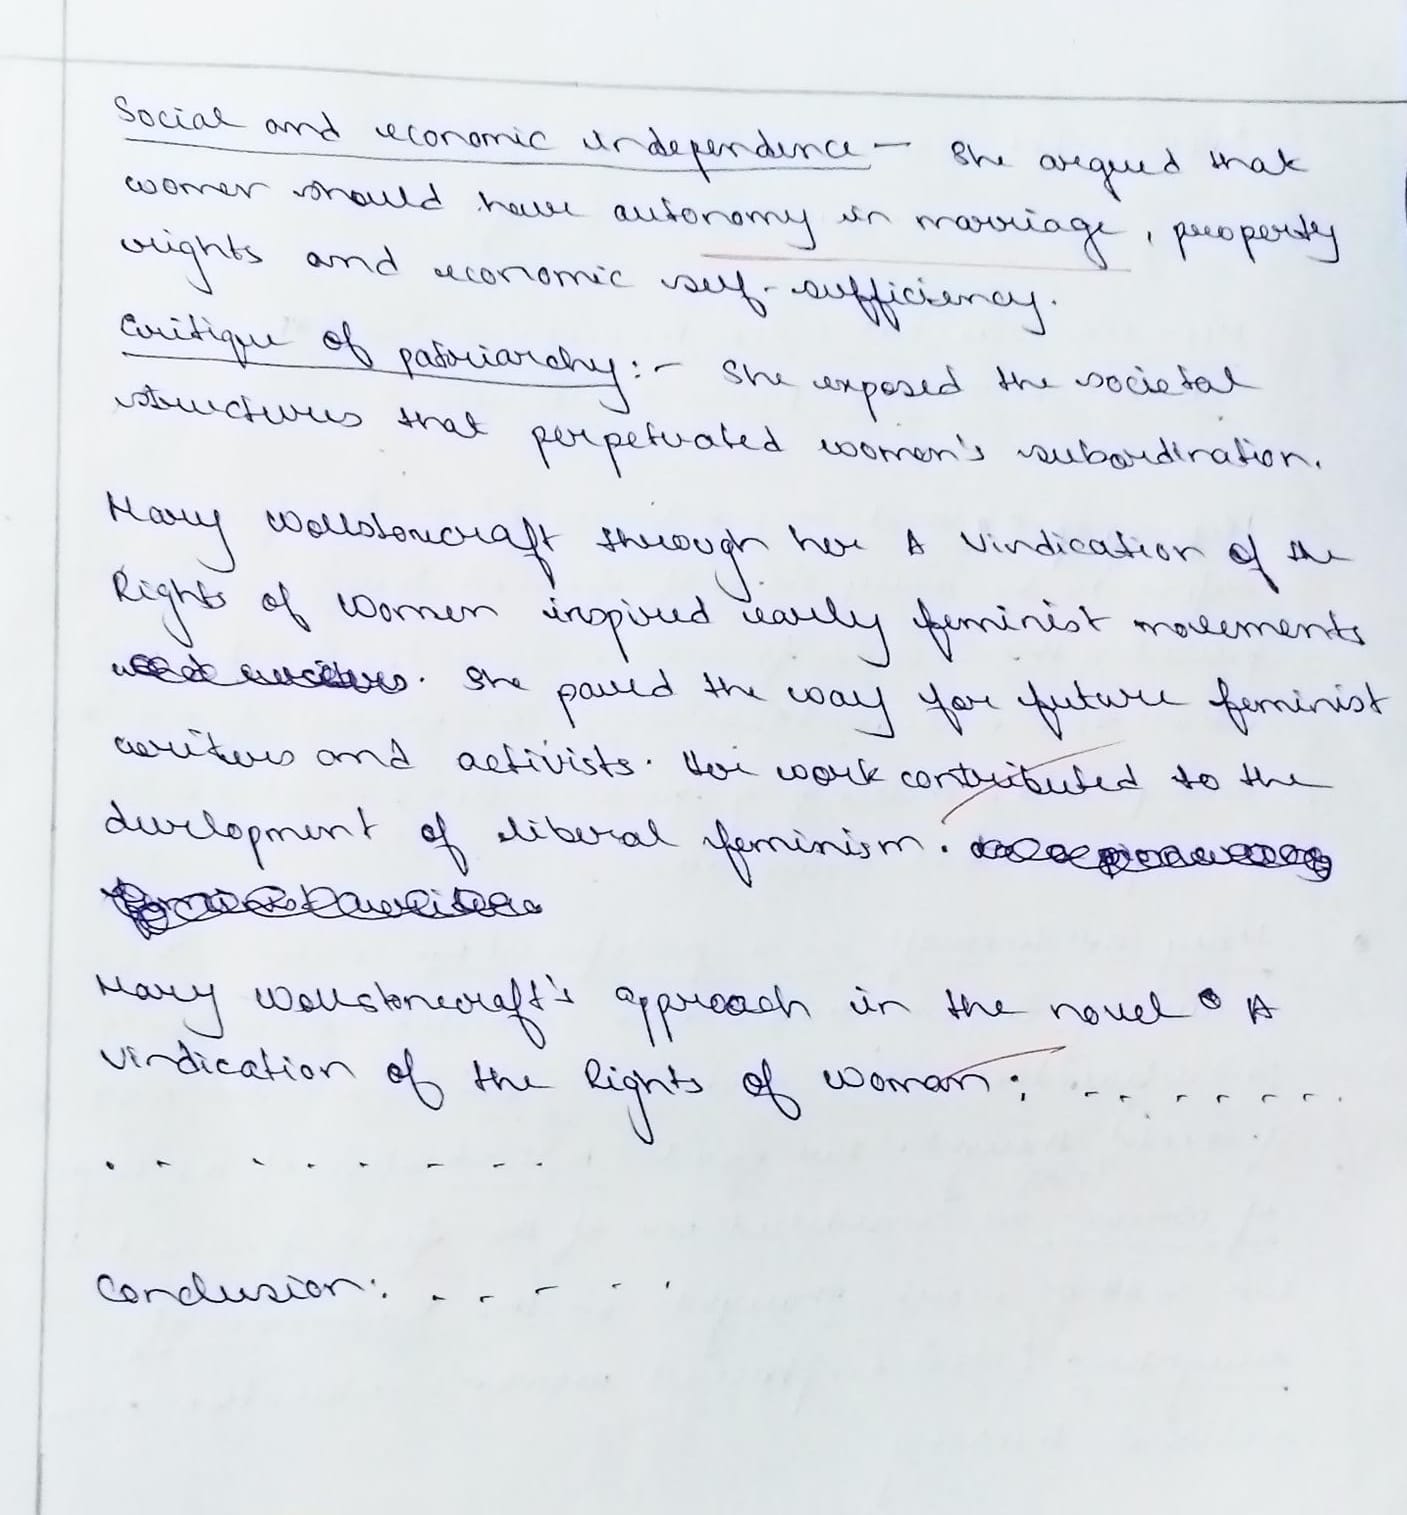 Social and economic independence - She argued that
women should have autonomy in marriage, property
rights and economic self-sufficiency.
Critique of patriarchy:- She exposed the societal
structures that perpetuated women's subordination.
Mary Wollstonecraft through her A Vindication of the
Rights of Women inspired early feminist movements
She paved the way for future feminist
writers and activists. Her work contributed to the
development of liberal feminism.
Mary Wollstonecraft's approach in the novel A
Vindication of the Rights of Woman: . - - - - - - .
. - - - - - - .
Conclusion: . - - - - .